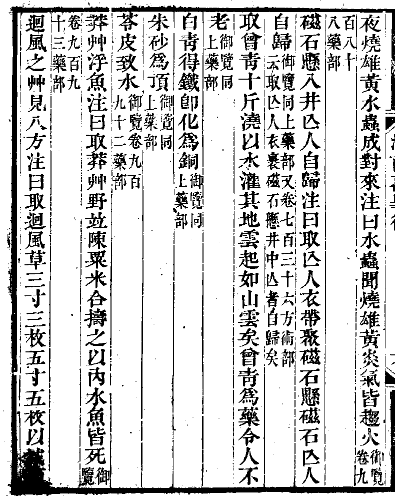 夜燒雄黃水蟲成對來注曰水蟲聞燒雄黃炎氣皆趨火御覽卷九
百八十八藥部
磁石懸入井亡人自歸注曰取亡人衣帶裹磁石懸磁石亡人
自歸御覽同上藥部又卷七百三十六方術部云取亡人衣裹磁石懸井中亡者自歸矣
取曾青十斤澆以水灌其地雲起如山雲矣曾青為藥令人不
老御覽同上藥部
白青得鐵卽化為銅御覽同上藥部
朱砂為澒御覽同上藥部
苓皮致水御覽卷九百九十二藥部
莽艸浮魚注曰取莽艸葉竝陳粟米合擣之以內水魚皆死御覽
卷九百九十三藥部
迴風之艸見八方注曰取迴風草三寸三枚五寸五枚以